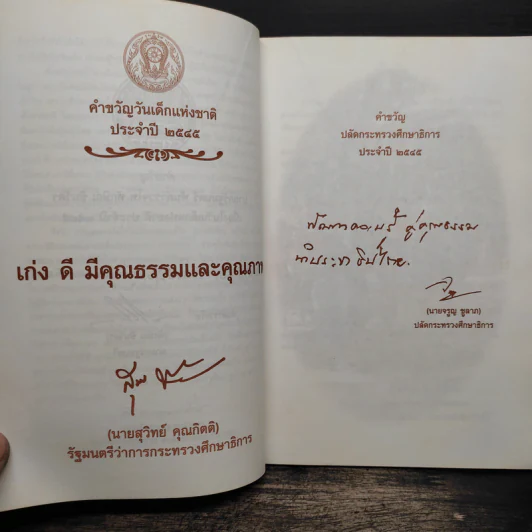 คำขวัญวันเด็กแห่งชาติ
ประจำปี ๒๕๔๕
เก่ง ดี มีคุณธรรมและคุณภาพ
(นายสุวิทย์ คุณกิตติ)
รัฐมนตรีว่าการกระทรวงศึกษาธิการ
คำขวัญ
ปลัดกระทรวงศึกษาธิการ
ประจำปี ๒๕๔๕
พัฒนาความรู้ คู่คุณธรรม
นำประชาธิปไตย.
(นายจรูญ ชูลาภ)
ปลัดกระทรวงศึกษาธิการ